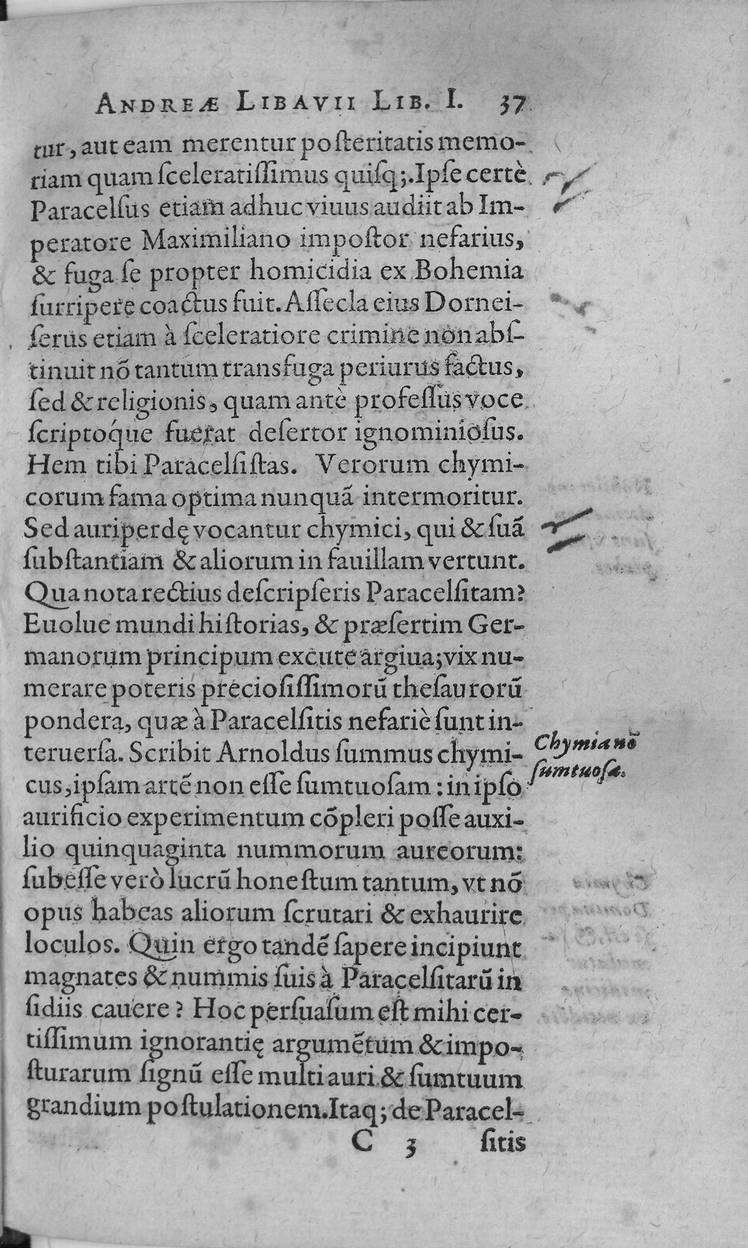 ANDREÆ LIBAVII LIB. I. 37
tur, aut eam merentur poſteritatis memo-
riam quam ſceleratiſſimus quiſq;. Ipſe certè
Paracelſus etiam adhuc viuus audiit ab Im-
peratore Maximiliano impoſtor nefarius,
& fuga ſe propter homicidia ex Bohemia
ſurripere coactus fuit. Aſſecla eius Dornei-
ſerus etiam à ſceleratiore crimine non abſ-
tinuit nõ tantum transfuga periurus factus,
ſed & religionis, quam antè profeſſus voce
ſcriptoq́ue fuerat deſertor ignominioſus.
Hem tibi Paracelſiſtas. Verorum chymi-
corum fama optima nunquã intermoritur.
Sed auriperdę vocantur chymici, qui & ſuã
ſubſtantiam & aliorum in fauillam vertunt.
Qua nota rectius deſcripſeris Paracelſitam?
Euolue mundi hiſtorias, & præſertim Ger-
manorum principum excute argiua; vix nu-
merare poteris précioſiſſimorũ theſaurorũ
pondera, quæ à Paracelſitis nefariè ſunt in-
teruerſa. Scribit Arnoldus ſummus chymi-
Chymia nõ
ſumtuoſa.
cus, ipſam artẽ non eſſe ſumtuoſam: in ipſo
aurificio experimentum cõpleri poſſe auxi-
lio quinquaginta nummorum aureorum:
ſubeſſe verò lucrũ honeſtum tantum, vt nõ
opus habeas aliorum ſcrutari & exhaurire
loculos. Quin ergo tandẽ ſapere incipiunt
magnates & nummis ſuis à Paracelſitarũ in
ſidiis cauere? Hoc perſuaſum eſt mihi cer-
tiſſimum ignorantię argumẽtum & impo-
ſturarum ſignũ eſſe multi auri & ſumtuum
grandium poſtulationem. Itaq; de Paracel-
C 3 ſitis